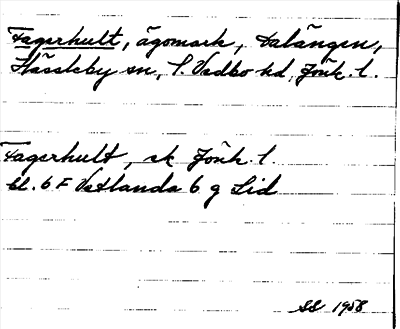 Fagerhult, ägomark, Dalängen,
Hässleby sn, S. Vedbo hd, Jönk. l.
Fagerhult, ek Jönk. l
bl. 6 F Vetlanda 6 g Lid
SS 1958